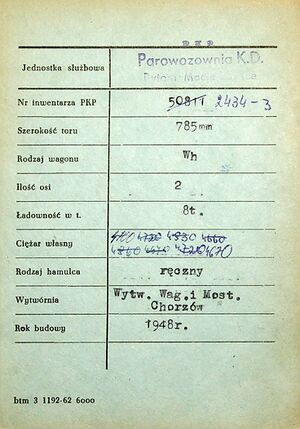 PKP
Jednostka służbowa Parowozownia K.D.
Nr inwentarza PKP 50811 2434-3
Szerokość toru 785mm
Rodzaj wagonu Wh
Ilość osi 2
Ładowność w t. 8t.
Ciężar własny 4720 4830 4660
4670
Rodzaj hamulca ręczny
Wytwórnia Wytw. Wag.i Most.
Chorzów
Rok budowy 1948r.
btm 3 1192-62 6000